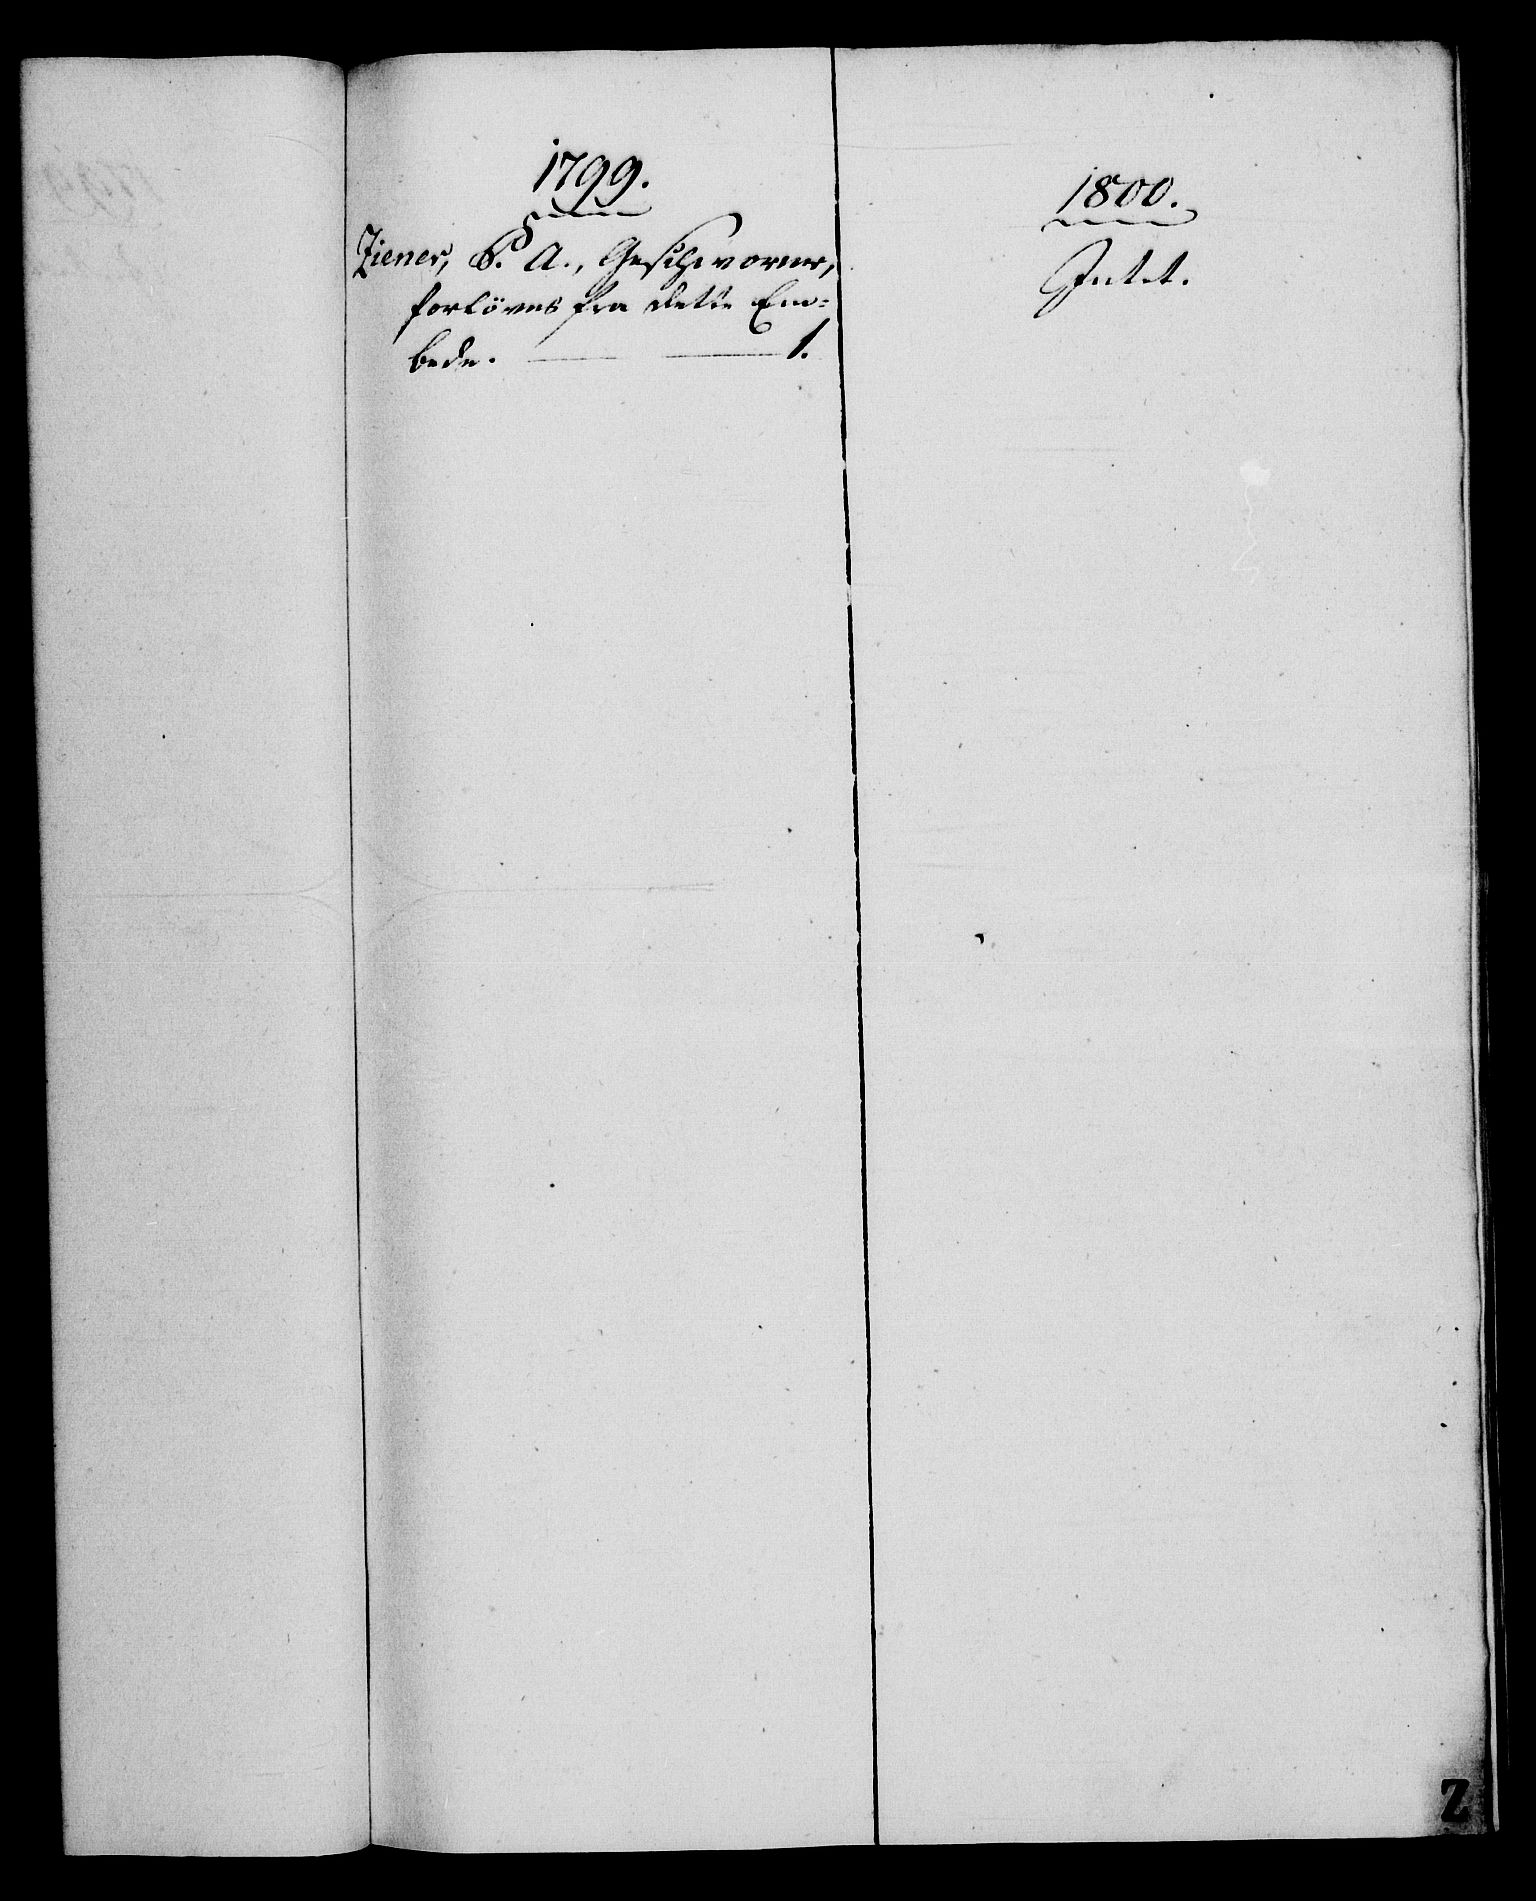 1799.
Ziener, P. A., Geschworner,
forlöves fra dette Em=
bede. 1.
1800.
Intet.
Z